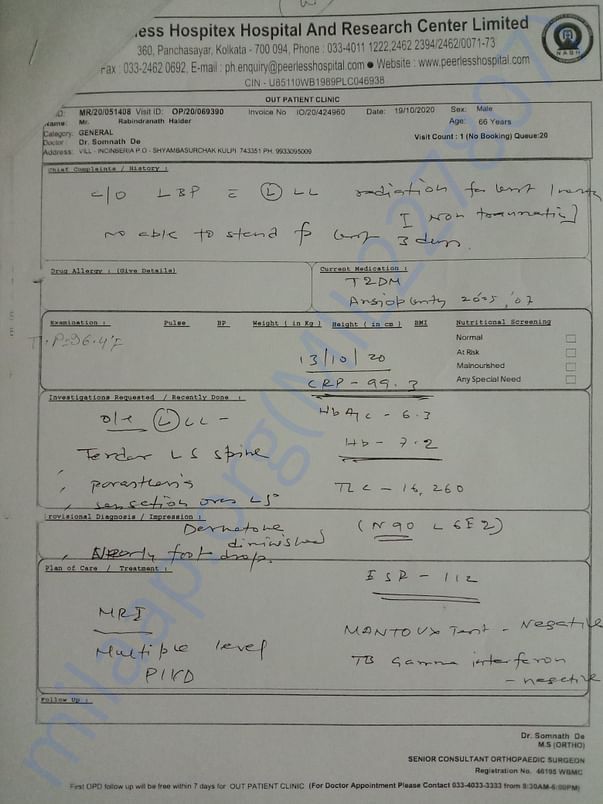 less Hospitex Hospital And Research Center Limited
360, Panchasayar, Kolkata - 700 094, Phone : 033-4011 1222,2462 2394/2462/0071-73
Fax : 033-2462 0692, E-mail : ph.enquiry@peerlesshospital.com ● Website : www.peerlesshospital.com
CIN - U85110WB1989PLC046938
NABH
OUT PATIENT CLINIC
ID: MR/20/051408 Visit ID: OP/20/069390 Invoice No IO/20/424960 Date: 19/10/2020 Sex: Male
Name: Mr. Rabindranath Halder Age: 66 Years
Category: GENERAL
Doctor : Dr. Somnath De Visit Count : 1 (No Booking) Queue:20
Address: VILL - INCINBERIA P.O - SHYAMBASURCHAK KULPI 743351 PH. 9933095009
Chief Complaints / History :
C/O LBP c (L) LL radiation for last 1
[Non traumatic]
no able to stand last 3 days.
Drug Allergy : (Give Details) Current Medication :
T2DM
Angioplasty 2005, '07
Examination : Pulse BP Weight ( in Kg ) Height ( in cm ) BMI Nutritional Screening
Normal
T.P=96.4°F
13/10/20 At Risk
Malnourished
CRP - 99.3 Any Special Need
Investigations Requested / Recently Done :
O/E (L) LL - HbA1c - 6.3
Hb - 7.2
Tender LS spine
TLC - 16,260
sensation over L5
Provisional Diagnosis / Impression :
Dermatome diminished (N90 L6E2)
Early foot drop.
Plan of Care / Treatment :
ESR - 112
MRI
MANTOUX Test - Negative
Multiple level
PIVD
TB Gamma interferon
- negative
Follow Up :
Dr. Somnath De
M.S (ORTHO)
SENIOR CONSULTANT ORTHOPAEDIC SURGEON
Registration No. 46195 WBMC
First OPD follow up will be free within 7 days for OUT PATIENT CLINIC (For Doctor Appointment Please Contact 033-4033-3333 from 8:30AM-6:00PM)